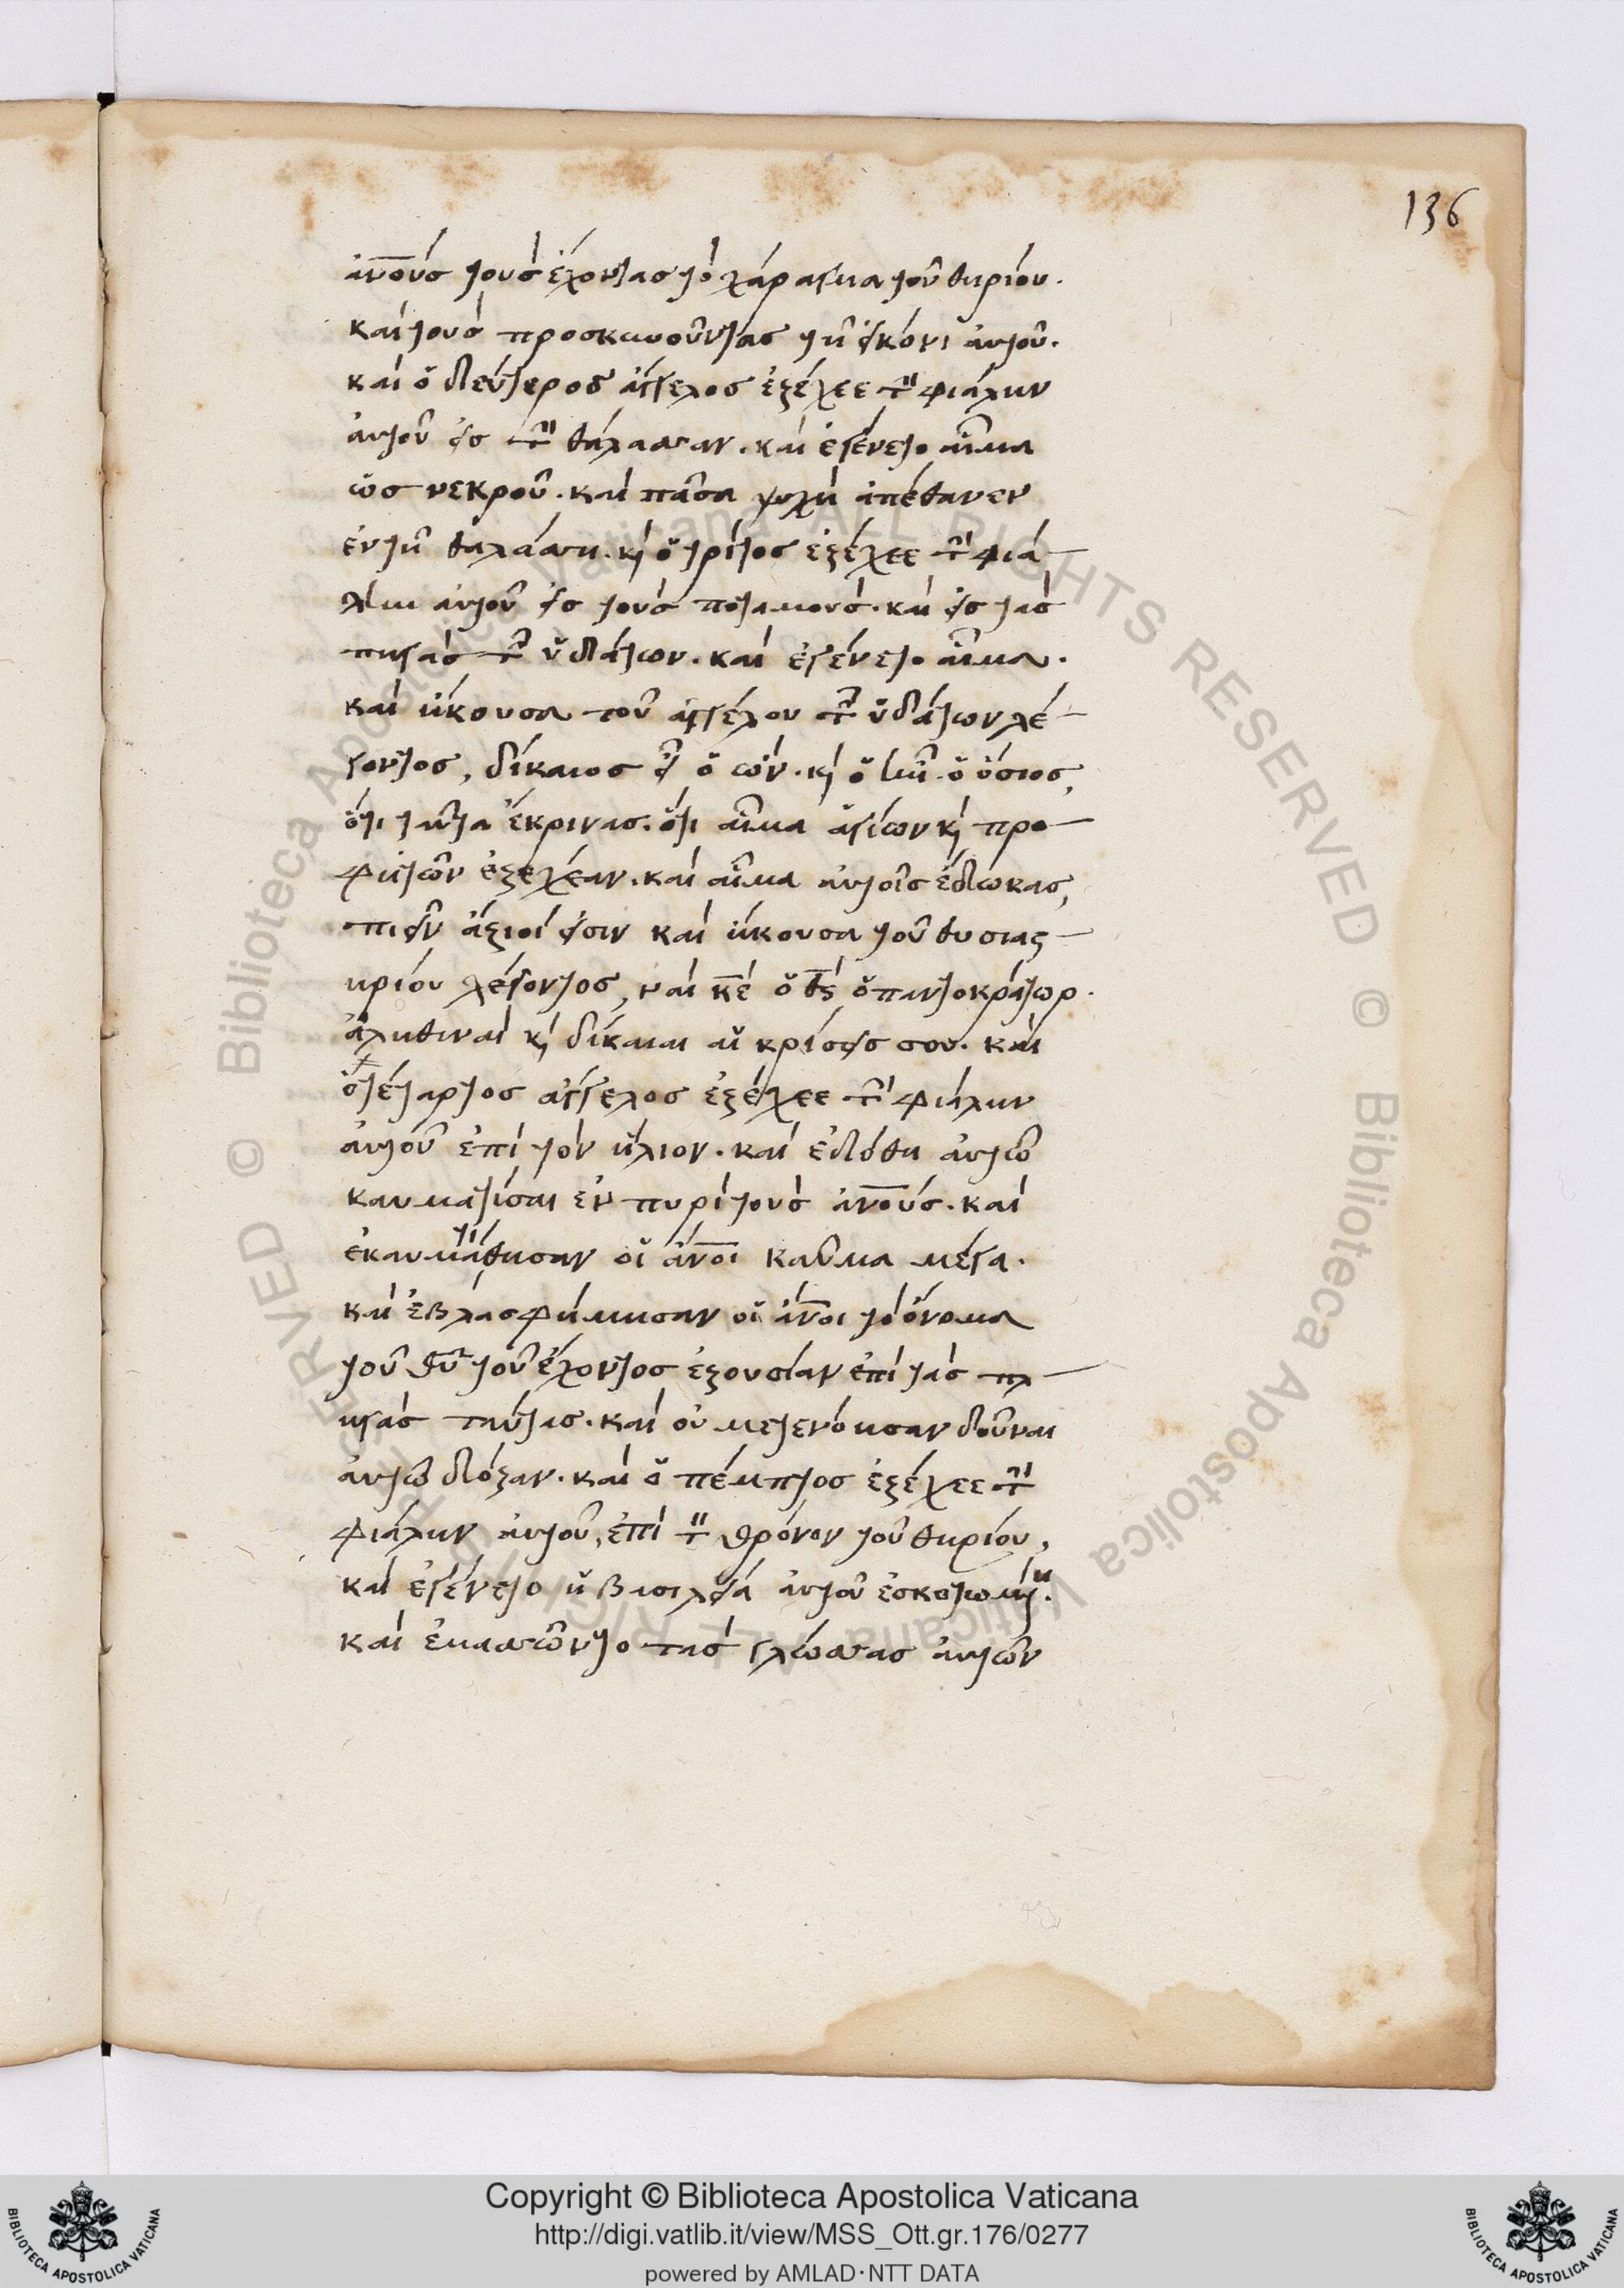 136
ἀν̅ο̅υ̅ς τοὺς ἔχοντας τὸ χάραγμα τοῦ θηρίου.
καὶ τοὺς προσκυνοῦντας τῆ εἰκόνι αὐτοῦ.
καὶ ὁ δεύτερος ἄγγελος ἐξέχεε τὴν φιάλην
αὐτοῦ εἰς τὴν θάλασσαν. καὶ ἐγένετο αἷμα
ὡς νεκροῦ. καὶ πᾶσα ψυχὴ ἀπέθανεν
ἐν τῆ θαλάσση. κὶ ὁ τρίτος ἐξέχεε τὴν φιά
λην αὐτοῦ εἰς τοὺς ποταμοὺς. καὶ εἰς τὰς
πηγὰς τῶν ὑδάτων. καὶ ἐγένετο αἷμα.
καὶ ἤκουσα τοῦ ἀγγέλου τῶν ὑδάτων λέ
γοντος, δίκαιος εἶ ὁ ὢν. κὶ ὁ ἦν. ὁ ὅσιος,
ὅτι ταῦτα ἔκρινας. ὅτι αἷμα ἁγίων κὶ προ
φητῶν ἐξέχεαν. καὶ αἷμα αὐτοῖς ἔδωκας,
πιεῖν ἄξιοί εἰσιν καὶ ἤκουσα τοῦ θυσιας
τηρίου λέγοντος, ναὶ κ̅ε̅ ὁ θ̅ς̅ ὁ παντοκράτωρ.
ἀληθιναὶ κὶ δίκαιαι αἱ κρίσεις σου. καὶ
ὁ τέταρτος ἄγγελος ἐξέχεε τὴν φιάλην
αὐτοῦ ἐπὶ τὸν ἥλιον. καὶ ἐδόθη αὐτῶ
καυματίσαι ἐν πυρὶ τοὺς ἀν̅ο̅υ̅ς. καὶ
ἐκαυματίσθησαν οἱ ἄν̅ο̅ι καῦμα μέγα.
καὶ ἐβλασφήμησαν οἱ ἄν̅ο̅ι τὸ ὄνομα
τοῦ θ̅υ̅ τοῦ ἔχοντος ἐξουσίαν ἐπὶ τὰς πλ
ηγὰς ταύτας. καὶ οὐ μετενόησαν δοῦναι
αὐτῶ δόξαν. καὶ ὁ πέμπτος ἐξέχεε τὴν
φιάλην αὐτοῦ, ἐπὶ τὸν θρόνον τοῦ θηρίου,
καὶ ἐγένετο ἡ βασιλεία αὐτοῦ ἐσκοτωμένη.
καὶ ἐμασσῶντο τὰς γλώσσας αὐτῶν
© Biblioteca Apostolica Vaticana ALL RIGHTS RESERVED © Biblioteca Apostolica Vaticana ALL RIGHTS RESERVED
Copyright © Biblioteca Apostolica Vaticana
http://digi.vatlib.it/view/MSS_Ott.gr.176/0277
powered by AMLAD·NTT DATA
BIBLIOTECA APOSTOLICA VATICANA
BIBLIOTECA APOSTOLICA VATICANA